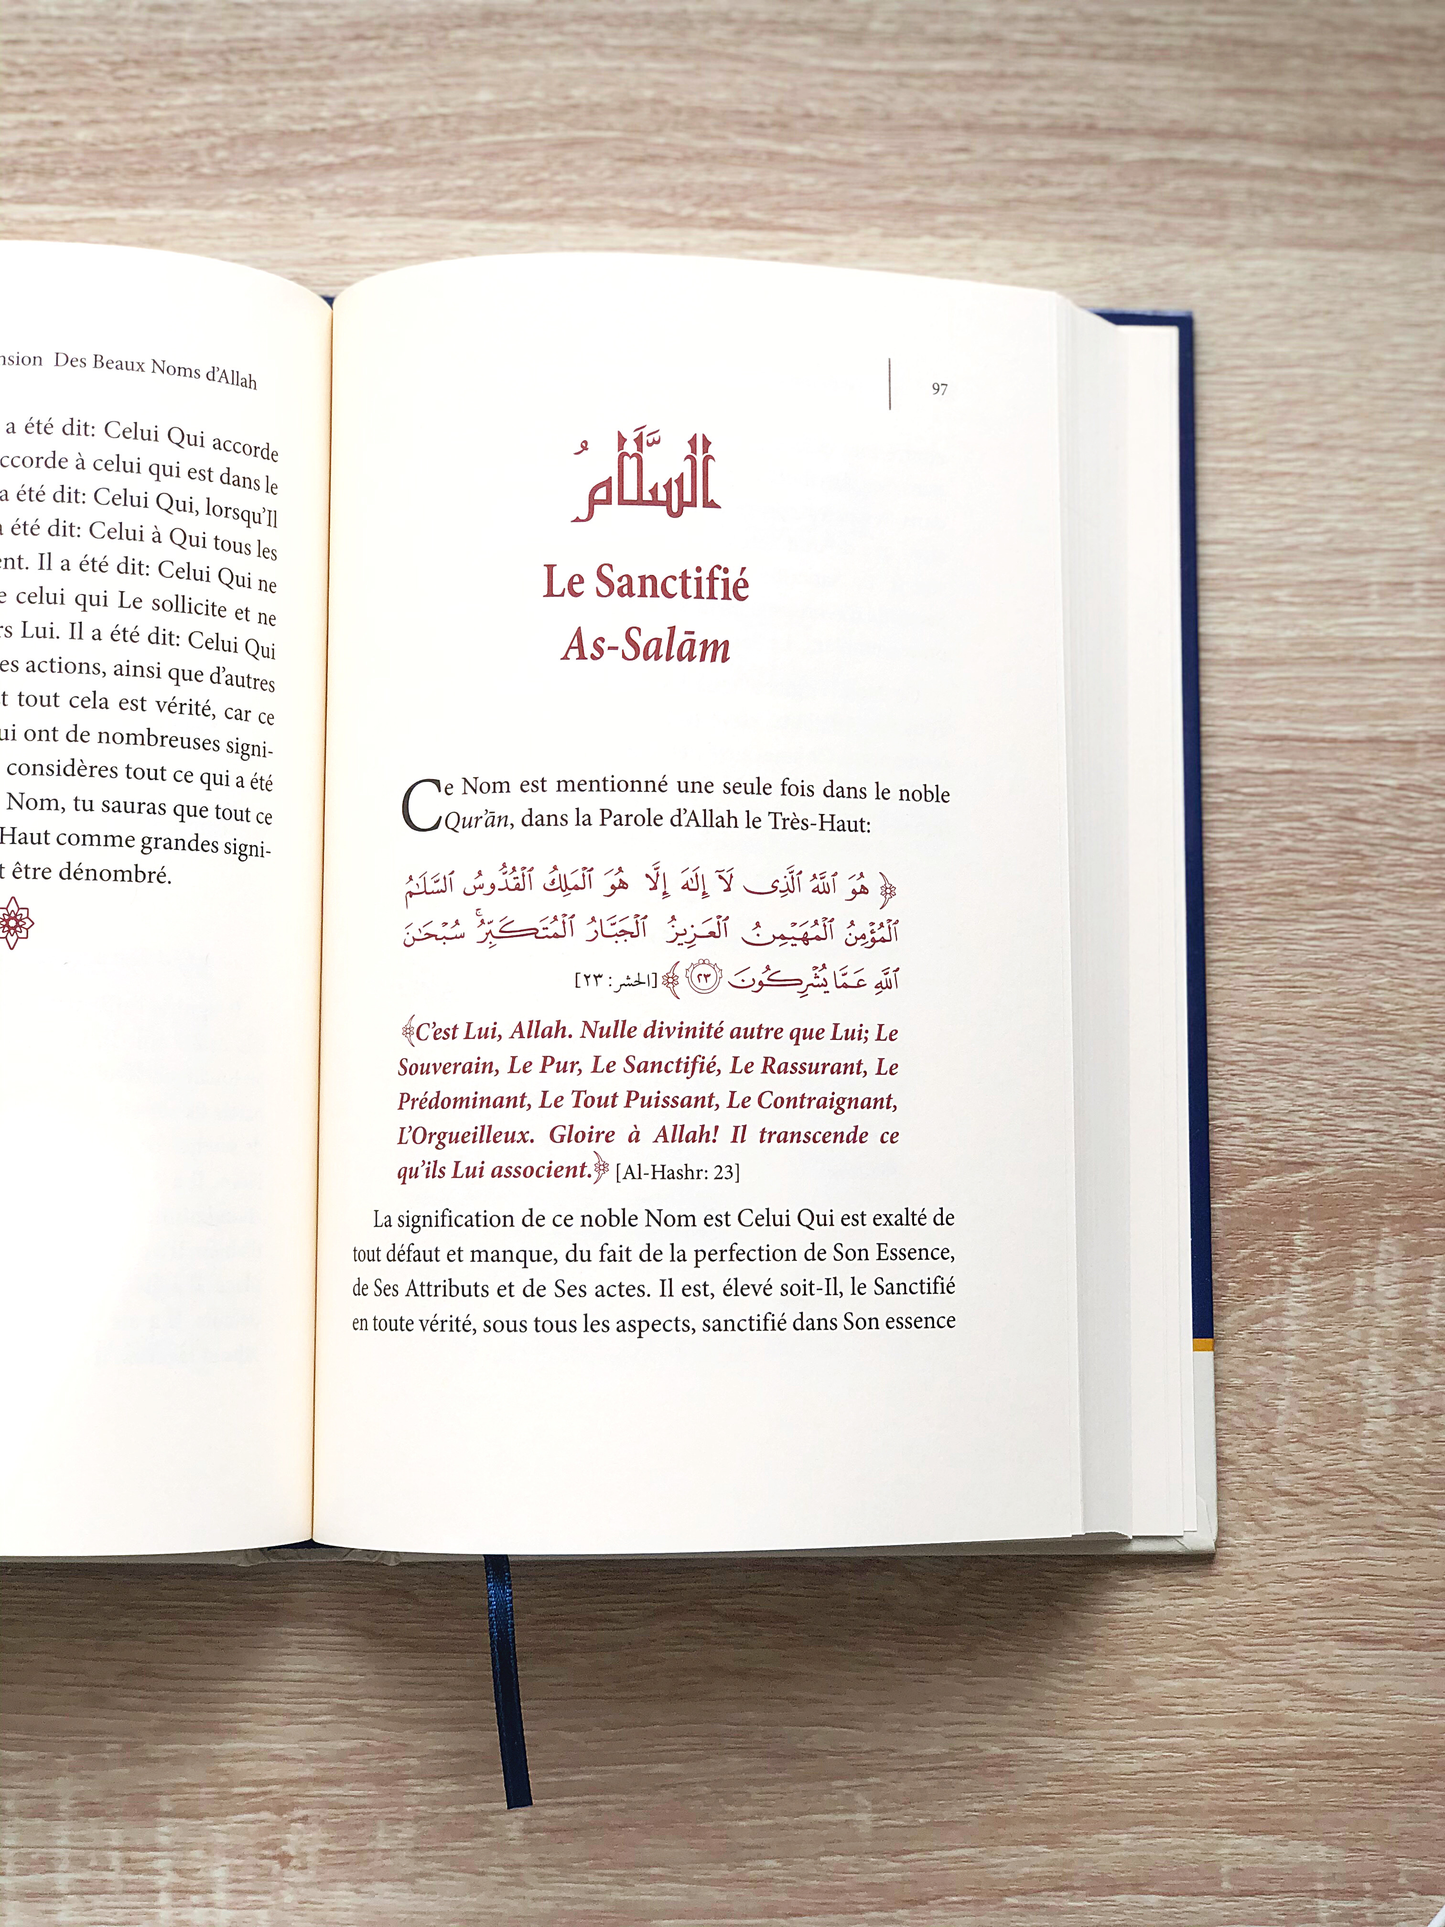 Des Beaux Noms d’Allah
a été dit: Celui Qui accorde
à celui qui est dans le
a été dit: Celui Qui, lorsqu’Il
été dit: Celui à Qui tous les
Il a été dit: Celui Qui ne
celui qui Le sollicite et ne
Lui. Il a été dit: Celui Qui
actions, ainsi que d’autres
tout cela est vérité, car ce
ont de nombreuses signi-
considères tout ce qui a été
Nom, tu sauras que tout ce
Haut comme grandes signi-
être dénombré.
97
السَّلَامُ
Le Sanctifié
As-Salām
Ce Nom est mentionné une seule fois dans le noble
Qur’ān, dans la Parole d’Allah le Très-Haut:
﴿ هُوَ ٱللَّهُ ٱلَّذِى لَآ إِلَٰهَ إِلَّا هُوَ ٱلْمَلِكُ ٱلْقُدُّوسُ ٱلسَّلَٰمُ
ٱلْمُؤْمِنُ ٱلْمُهَيْمِنُ ٱلْعَزِيزُ ٱلْجَبَّارُ ٱلْمُتَكَبِّرُ ۚ سُبْحَٰنَ
ٱللَّهِ عَمَّا يُشْرِكُونَ ٢٣ ﴾ [الحشر: ٢٣]
﴿C’est Lui, Allah. Nulle divinité autre que Lui; Le
Souverain, Le Pur, Le Sanctifié, Le Rassurant, Le
Prédominant, Le Tout Puissant, Le Contraignant,
L’Orgueilleux. Gloire à Allah! Il transcende ce
qu’ils Lui associent.﴾ [Al-Hashr: 23]
La signification de ce noble Nom est Celui Qui est exalté de
tout défaut et manque, du fait de la perfection de Son Essence,
de Ses Attributs et de Ses actes. Il est, élevé soit-Il, le Sanctifié
en toute vérité, sous tous les aspects, sanctifié dans Son essence